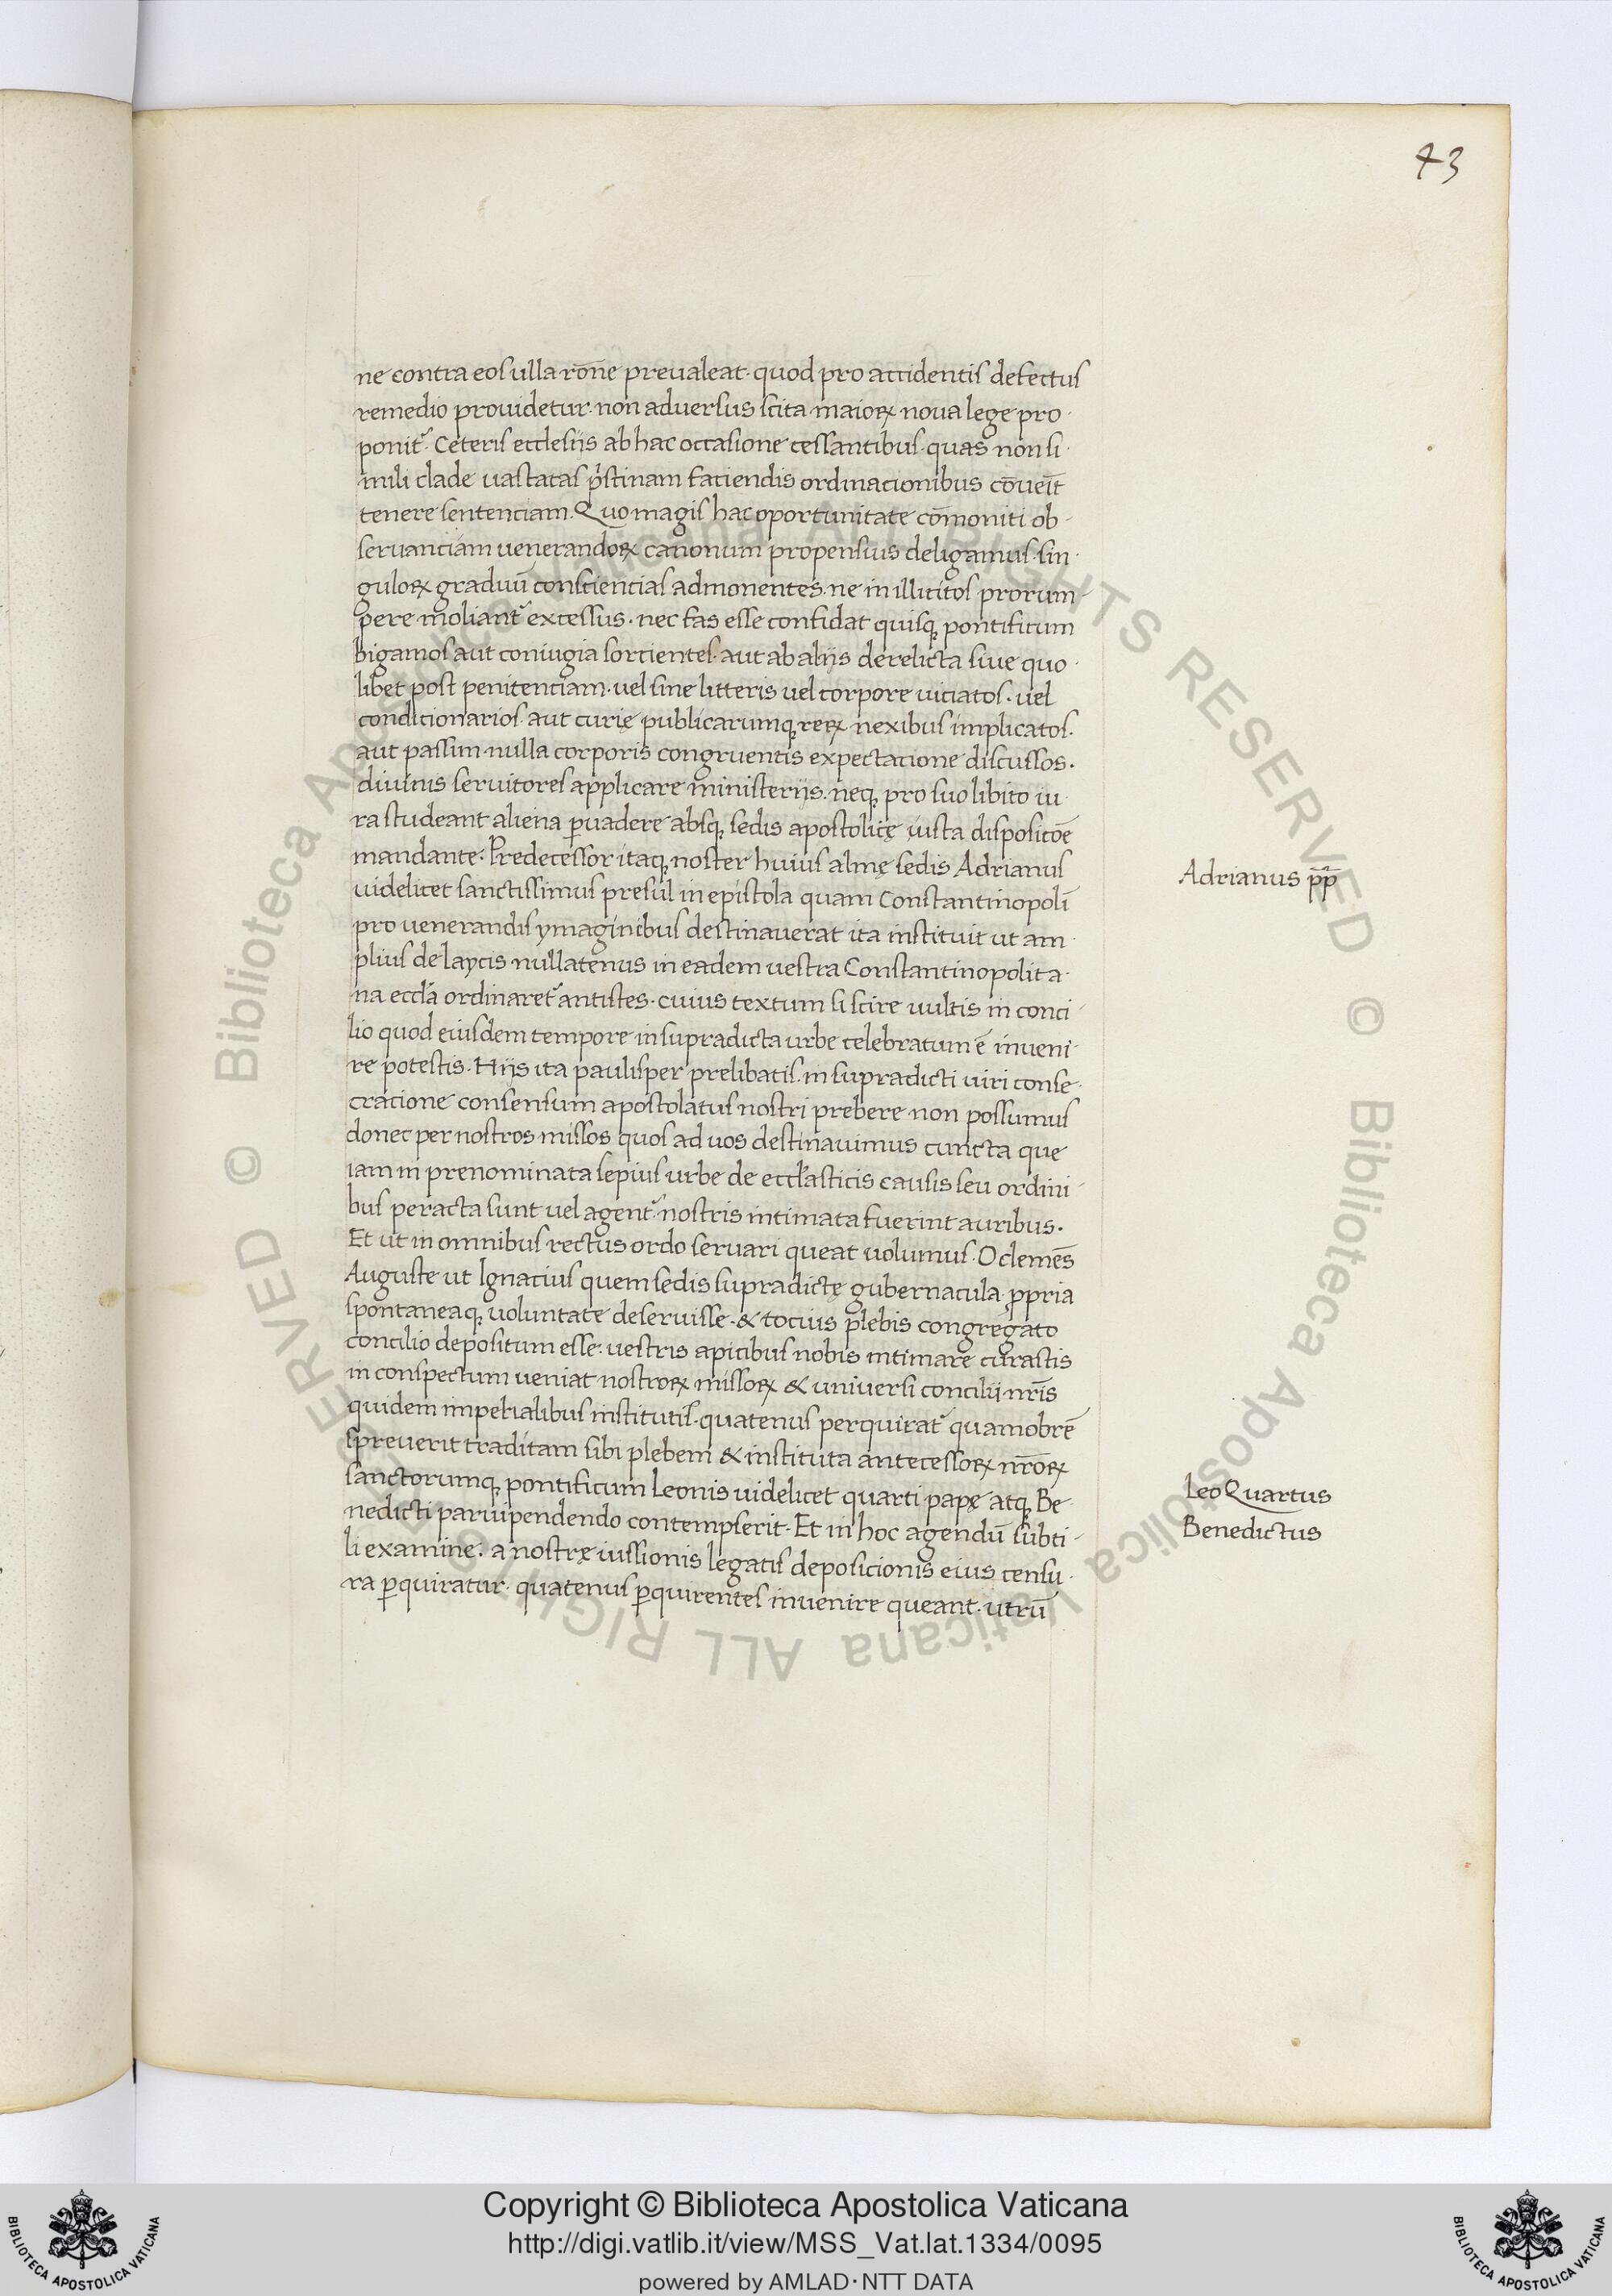 43
ne contra eos ulla rōne prevaleat· quod pro accidentis defectus
remedio providetur· non adversus scita maioꝝ nova lege pro·
ponit᷑· Ceteris ecclesiis ab hac occasione cessantibus· quas non si·
mili clade vastatas p̄stinam faciendis ordinacionibus cōveīt
tenere sentenciam· Quo magis hac oportunitate cōmoniti ob·
servanciam venerandoꝝ canonum propensius deligamus· sin·
guloꝝ graduū consciencias admonentes· ne in illicitos prorum·
pere moliant᷑ excessus· nec fas esse confidat quisqꝫ pontificum
bigamos aut coniugia sorcientes· aut ab aliis derelicta sive quo·
libet post penitenciam· vel sine litteris vel corpore viciatos· vel
condicionarios· aut curię publicarumqꝫ reꝝ nexibus implicatos·
aut passim nulla corporis congruentis expectacione discussos·
divinis servitores applicare ministeriis· neqꝫ pro suo libito iu·
ra studeant aliena ꝑvadere absqꝫ sedis apostolicę iusta disposicōe
mandante· Predecessor itaqꝫ noster huius almę sedis Adrianus
videlicet sanctissimus presul in epistola quam Constantinopolī
pro venerandis ymaginibus destinaverat ita instituit ut am·
plius de laycis nullatenus in eadem vestra Constantinopolita·
na eccl̄a ordinaret᷑ antistes· cuius textum si scire vultis in conci·
lio quod eiusdem tempore in supradicta urbe celebratum ē inveni·
re potestis· Hiis ita paulisper prelibatis· in supradicti viri conse·
cracione consensum apostolatus nostri prebere non possumus
donec per nostros missos quos ad vos destinavimus cuncta que
iam in prenominata sepius urbe de eccl̄asticis causis seu ordini·
bus peracta sunt vel agent᷑ nostris intimata fuerint auribus·
Et ut in omnibus rectus ordo servari queat volumus· O clemēs
Auguste ut Ignacius quem sedis supradictę gubernacula ꝓpria
spontaneaqꝫ voluntate deservisse· & tocius plebis congregato
concilio depositum esse· vestris apicibus nobis intimare curastis
in conspectum veniat nostroꝝ missoꝝ & universi concilii nrīs
quidem imperialibus institutis· quatenus perquirat᷑ quamobrē
spreverit traditam sibi plebem & instituta antecessoꝝ nrōꝝ
sanctorumqꝫ pontificum Leonis videlicet quarti papę atqꝫ Be·
nedicti parvipendendo contempserit· Et in hoc agendū subti·
li examine· a nostrę iussionis legatis deposicionis eius censu·
ra ꝑquiratur· quatenus ꝑquirentes invenire queant· utrū
Adrianus p̄p̄
Leo Quartus
Benedictus
© Biblioteca Apostolica Vaticana ALL RIGHTS RESERVED © Biblioteca Apostolica Vaticana ALL RIGHTS RESERVED
Copyright © Biblioteca Apostolica Vaticana
http://digi.vatlib.it/view/MSS_Vat.lat.1334/0095
powered by AMLAD·NTT DATA
BIBLIOTECA APOSTOLICA VATICANA
BIBLIOTECA APOSTOLICA VATICANA